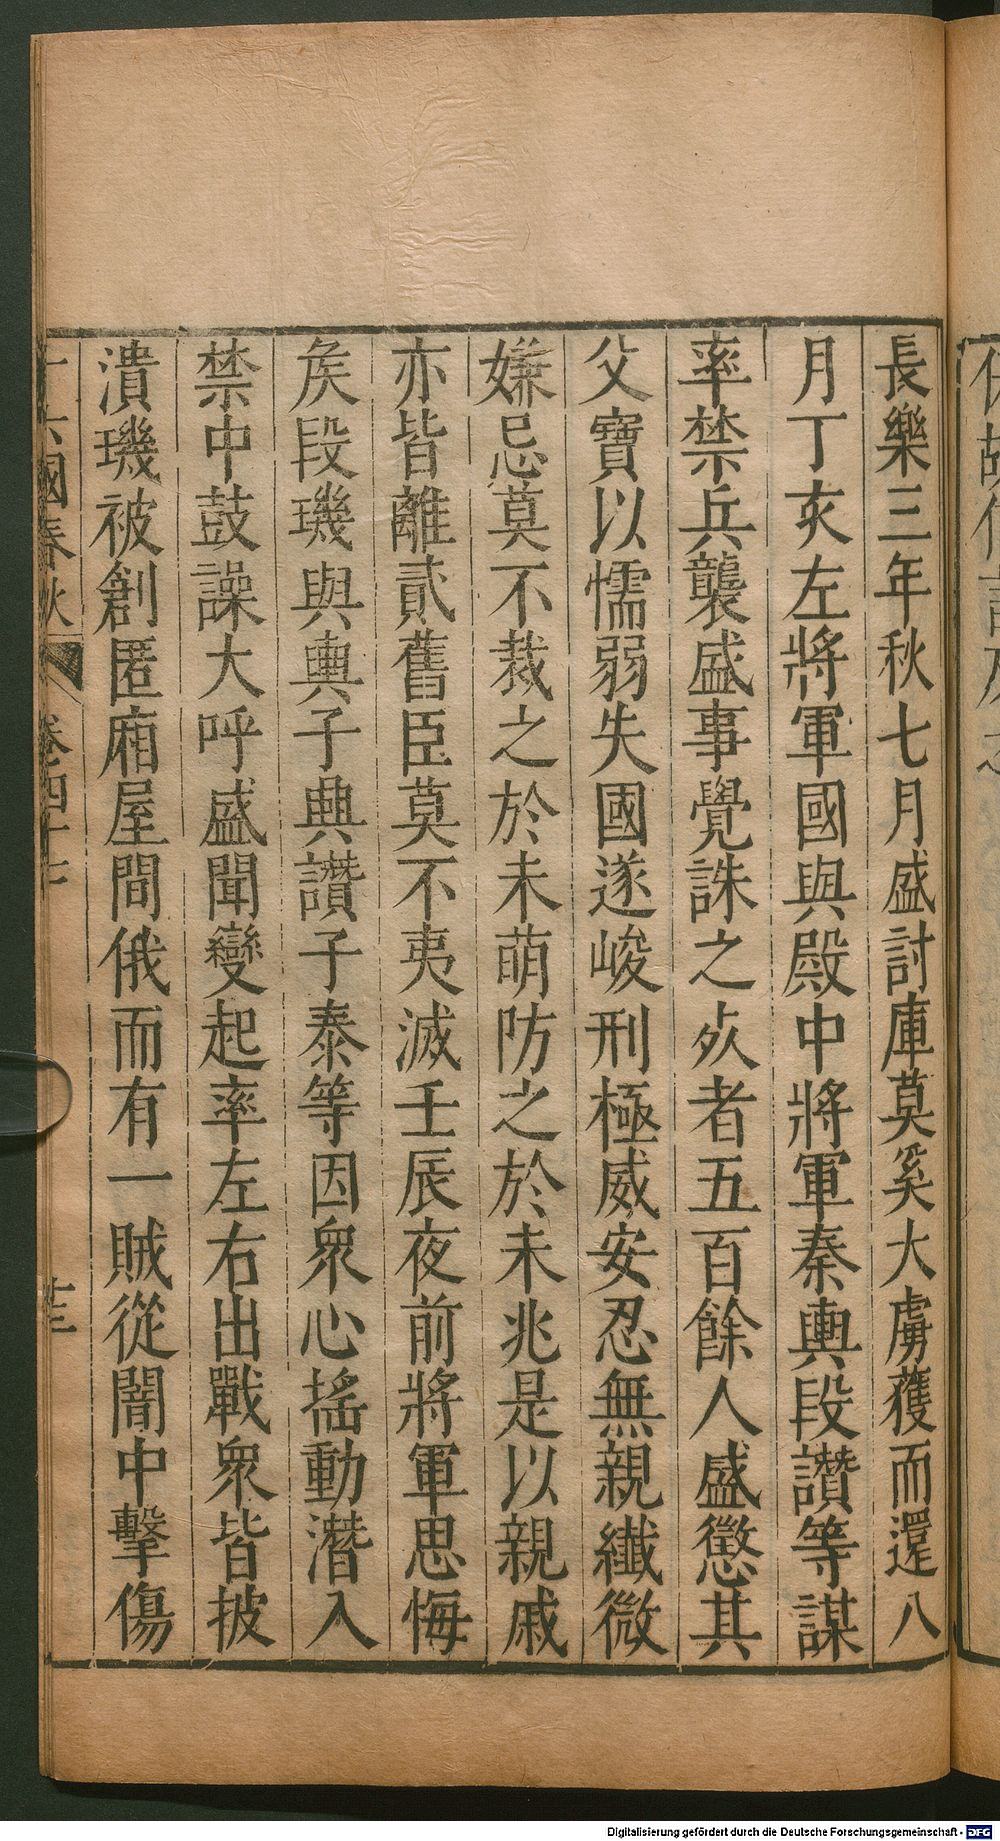 長樂三年秋七月盛討庫莫奚大虜獲而還八
月丁亥左將軍國與殿中將軍秦輿段讚等謀
率禁兵襲盛事覺誅之㱙者五百餘人盛懲其
父寶以懦弱失國遂峻刑極威安忍無親纖微
嫌忌莫不裁之於未萌防之於未兆是以親戚
亦皆離貳舊臣莫不夷滅壬辰夜前將軍思悔
矦段璣與輿子典讚子泰等因衆心搖動潛入
禁中鼓譟大呼盛聞變起率左右出戰衆皆披
潰璣被創匿廂屋間俄而有一賊從闇中擊傷
十六國春秋 卷四十七
Digitalisierung gefördert durch die Deutsche Forschungsgemeinschaft - DFG